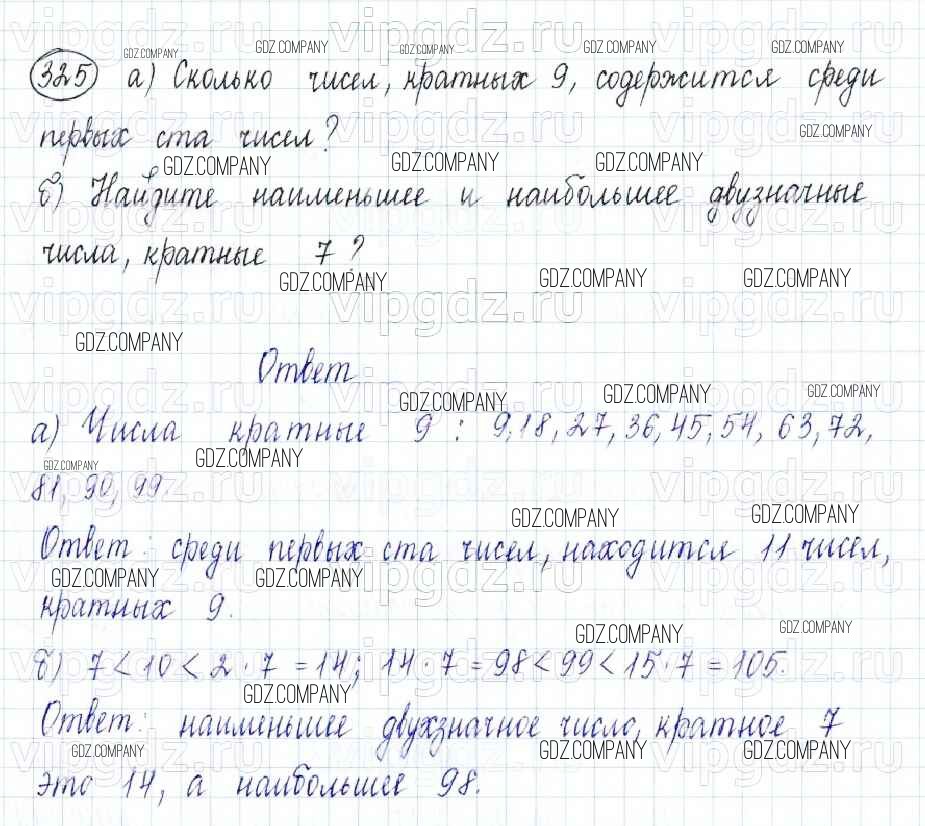 325 а) Сколько чисел, кратных 9, содержится среди
первых ста чисел?
б) Найдите наименьшее и наибольшее двузначные
числа, кратные 7?
Ответ
а) Числа кратные 9 : 9,18,27,36,45,54,63,72,
81, 90, 99.
Ответ: среди первых ста чисел, находится 11 чисел,
кратных 9.
б) 7 < 10 < 2 · 7 = 14; 14 · 7 = 98 < 99 < 15 · 7 = 105.
Ответ: наименьшее двухзначное число, кратное 7
это 14, а наибольшее 98.